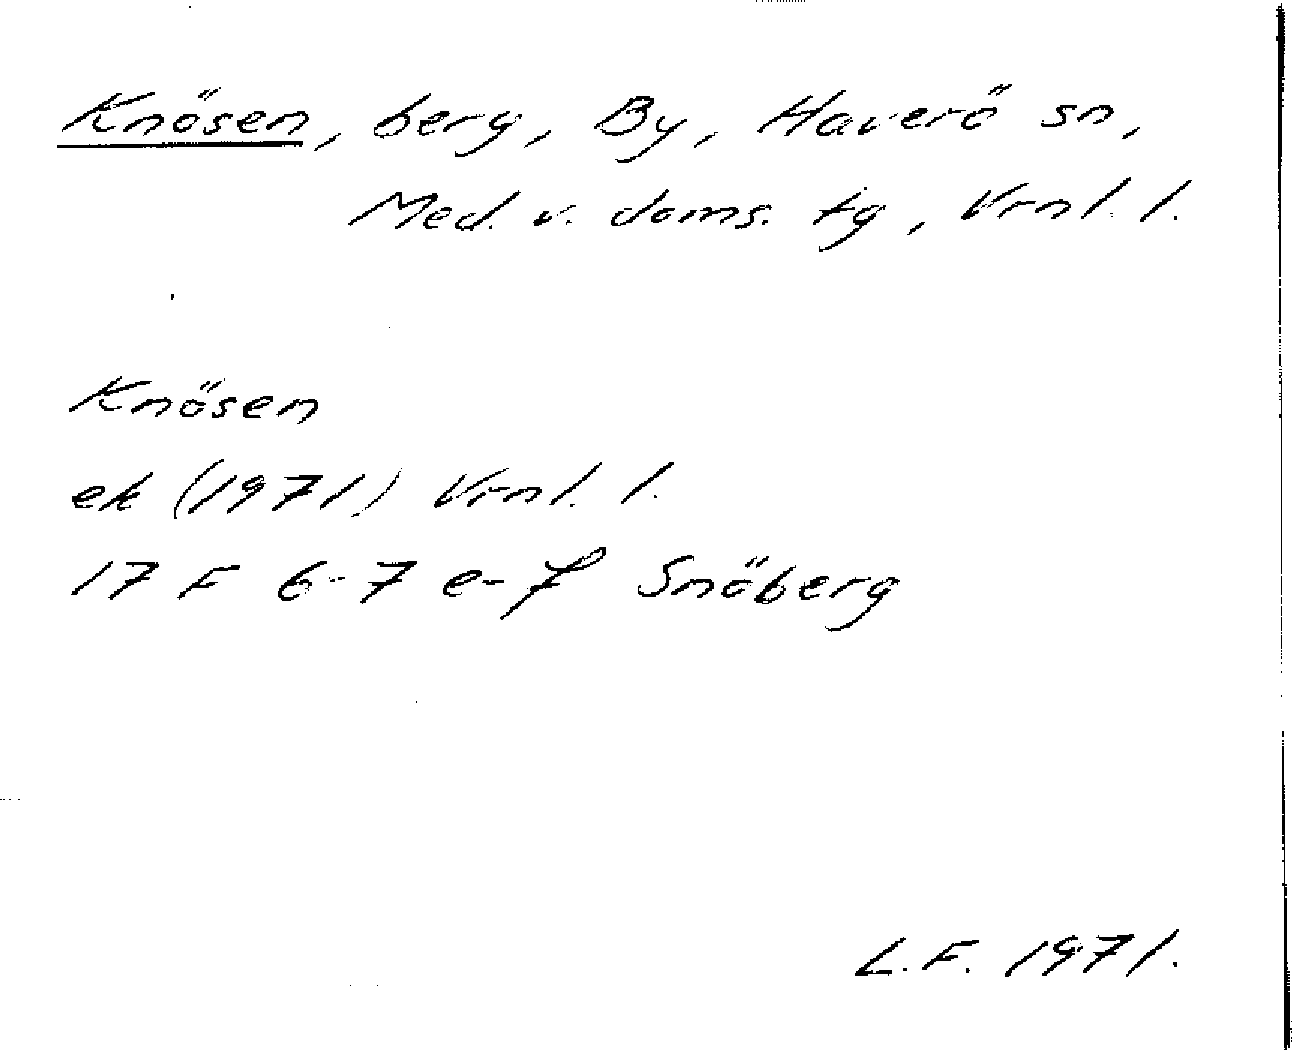 Knösen, berg, By, Haverö sn,
Med. v. doms. tg, Vrnl. l.
Knösen
ek (1971) Vrnl. l.
17 F 6-7 e-f Snöberg
L.F. 1971.